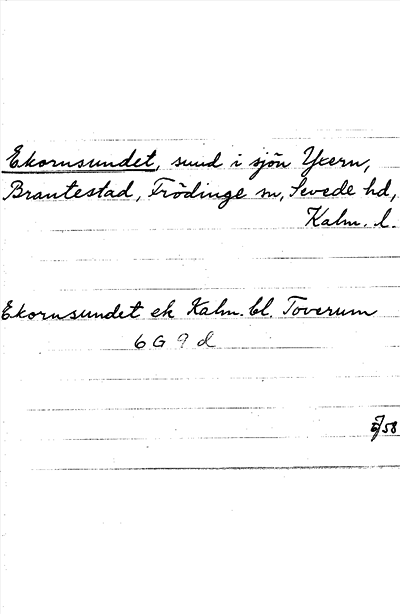 Ekornsundet, sund i sjön Yxern,
Brantestad, Frödinge sn, Sevede hd,
Kalm. l.
Ekornsundet ek Kalm. bl. Toverum
6 G 9 d